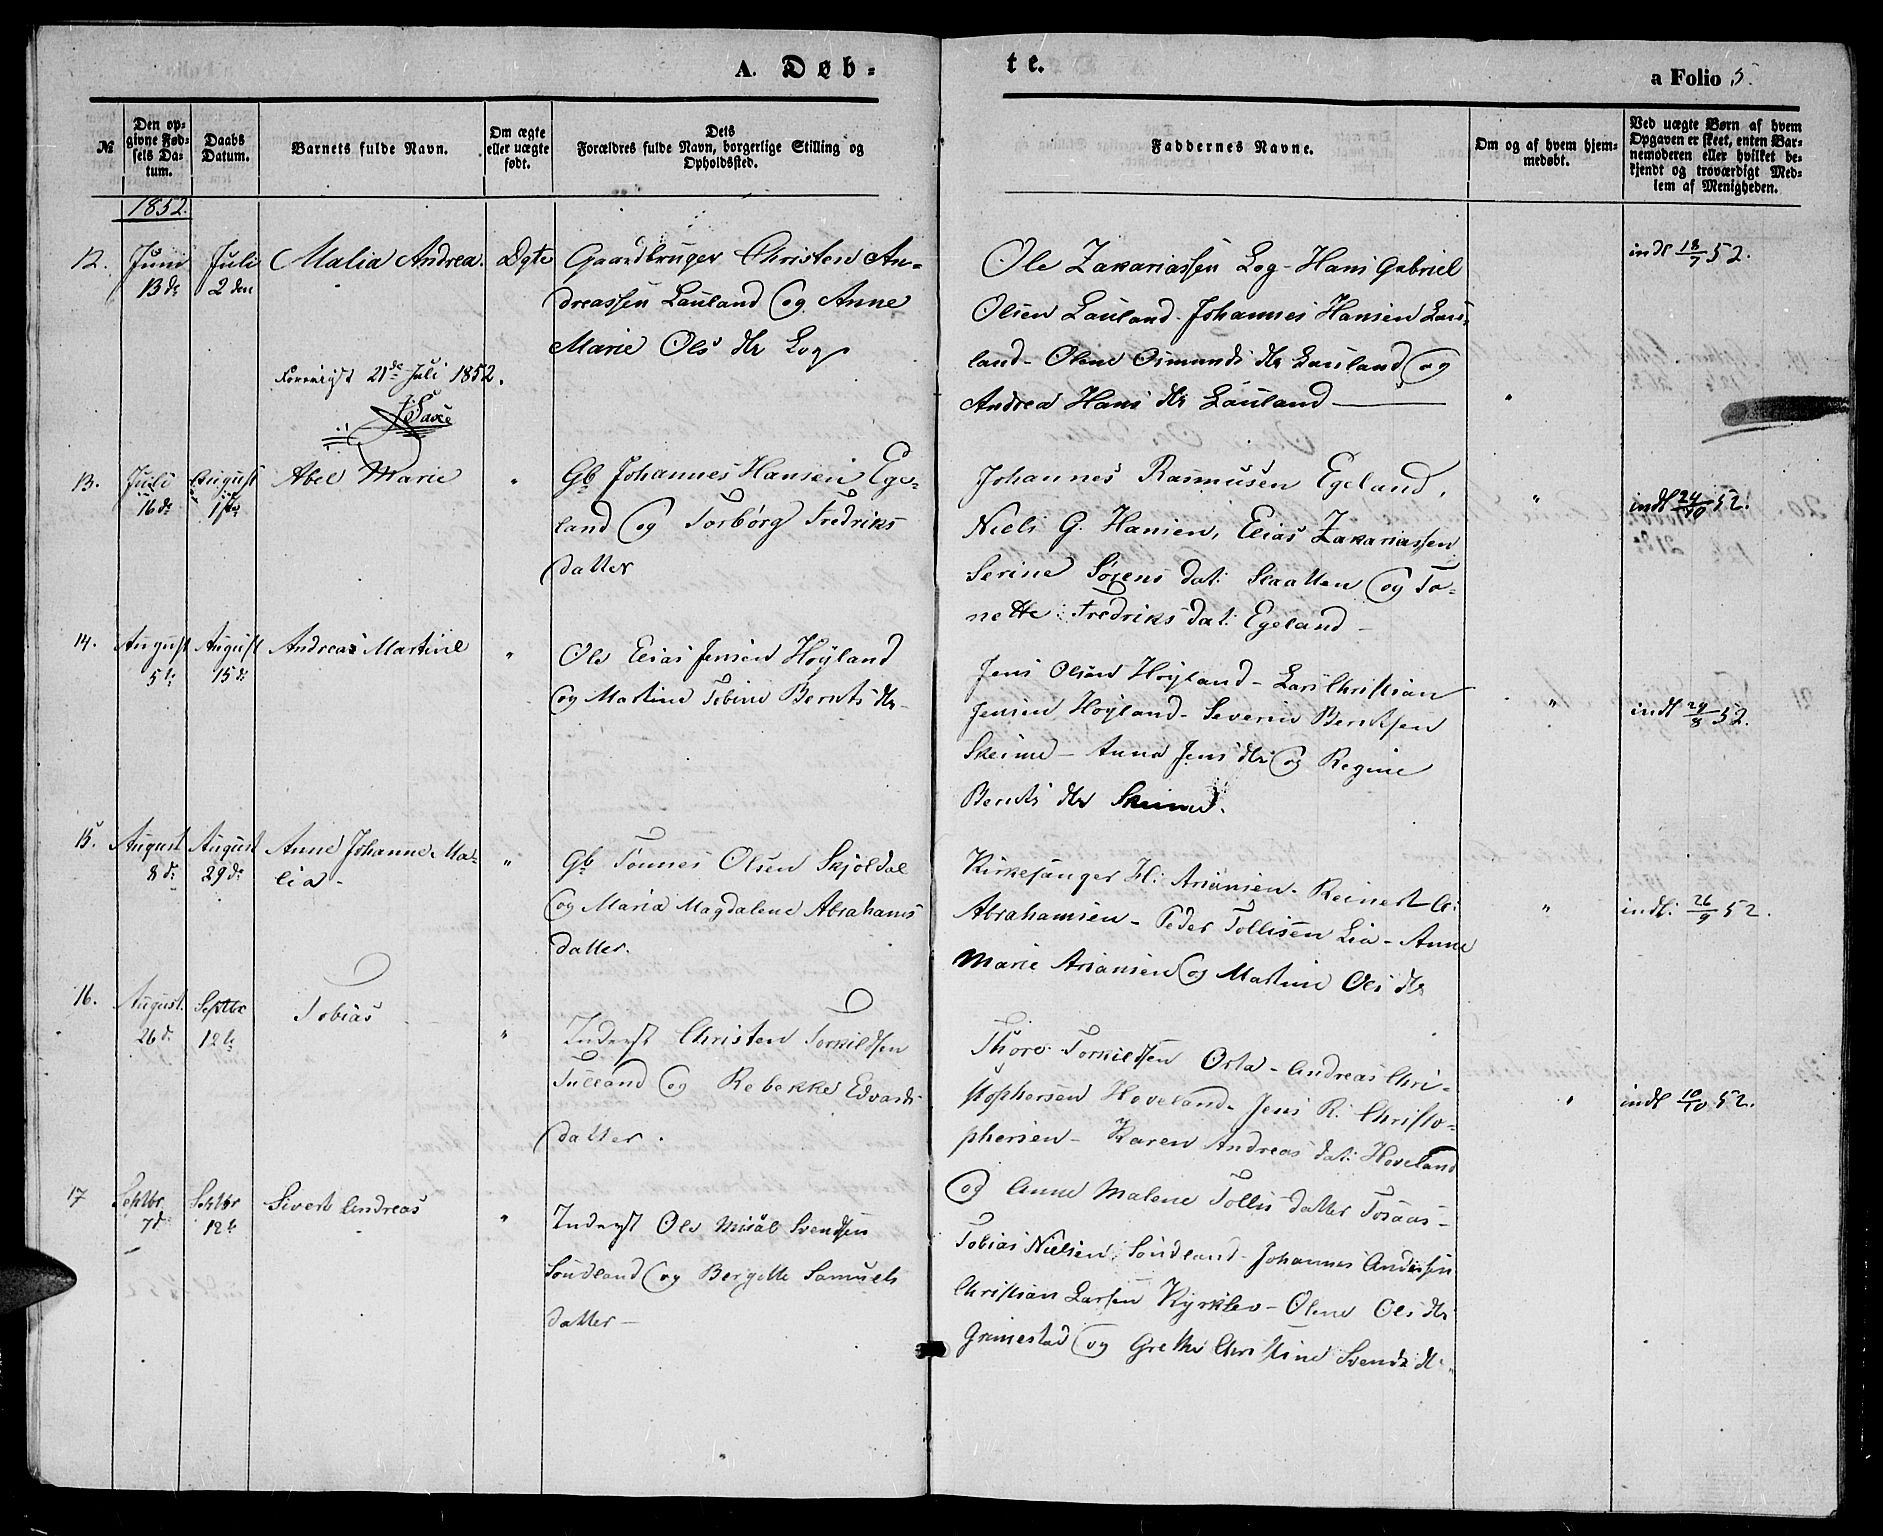 A. Døb-
te.
a Folio 5.
№
Den op-
givne Fød-
sels Da-
tum.
Daabs
Datum.
Barnets fulde Navn.
Om ægte
eller uægte
født.
Dets
Forældres fulde Navn, borgerlige Stilling og
Opholdssted.
Faddernes Navne.
Om og af hvem hjem-
medøbt.
Ved uægte Børn af hvem
Opgaven er skeet, enten Bar-
nemoderen eller hvilket be-
kjendt og troværdigt Med-
lem af Menigheden.
1852.
12.
Juni
13de
Juli
2den
Malia Andrea.
Ægte
Gaardbruger Christen An-
dreassen Lauland og Anne
Marie Ols dtr Log
Ole Zakariassen Log - Hans Gabriel
Olsen Lauland - Johannes Hansen Lau-
land - Olene Osmunds dtr Lauland og
Andrea Hans dtr Lauland
"
indl 18/7 52.
21de Juli 1852.
13.
Juli
16de
August
1ste
Abel Marie
"
Gb Johannes Hansen Ege-
land og Torborg Fredriks
datter
Johannes Rasmusen Egeland,
Niels G. Hansen, Elias Zakariassen
Serine Sørens dat: Slaatten og To-
nette Fredriks dat: Egeland -
"
indl 24/10 52.
14.
August
5te
August
15de
Andreas Martine
"
Ole Elias Jensen Høyland
og Martine Tobine Bernts dtr
Jens Olsen Høyland - Lars Christian
Jensen Høyland - Severin Berntsen
Skeime - Anna Jens dtr og Regine
Bernts dtr Skeime.
"
indl 29/8 52.
15.
August
8de
August
29de
Anne Johanne Ma-
lia -
"
Gb Tønnes Olsen Skjoldal
og Maria Magdalene Abrahams
datter.
Kirkesanger H: Ariansen - Reinert A:
Abrahamsen - Peder Tollisen Lia - Anne
Marie Ariansen og Martine Ols dtr
"
indl: 26/9 52.
16.
August
26de
Septbr
12te
Tobias
"
Inderst Christen Torkildsen
Tulland og Rebekke Edvards
datter.
Thore Torkildsen Osta - Andreas Chri-
stophersen Hoveland - Jens R: Christo-
phersen - Karen Andreas dat: Hoveland
og Anne Malene Tollis datter Tosaas -
"
indl 10/10 52.
17
Septbr
7de
Septbr
12te
Sivert Andreas
"
Inderst Ole Misal Svendsen
Sondland og Bergitte Samuels
datter -
Tobias Nielsen Sondland - Johannes Andersen
Christian Larsen Kyrkebø - Olene Ols dtr
Grimestad og Grethe Christine Svends dtr